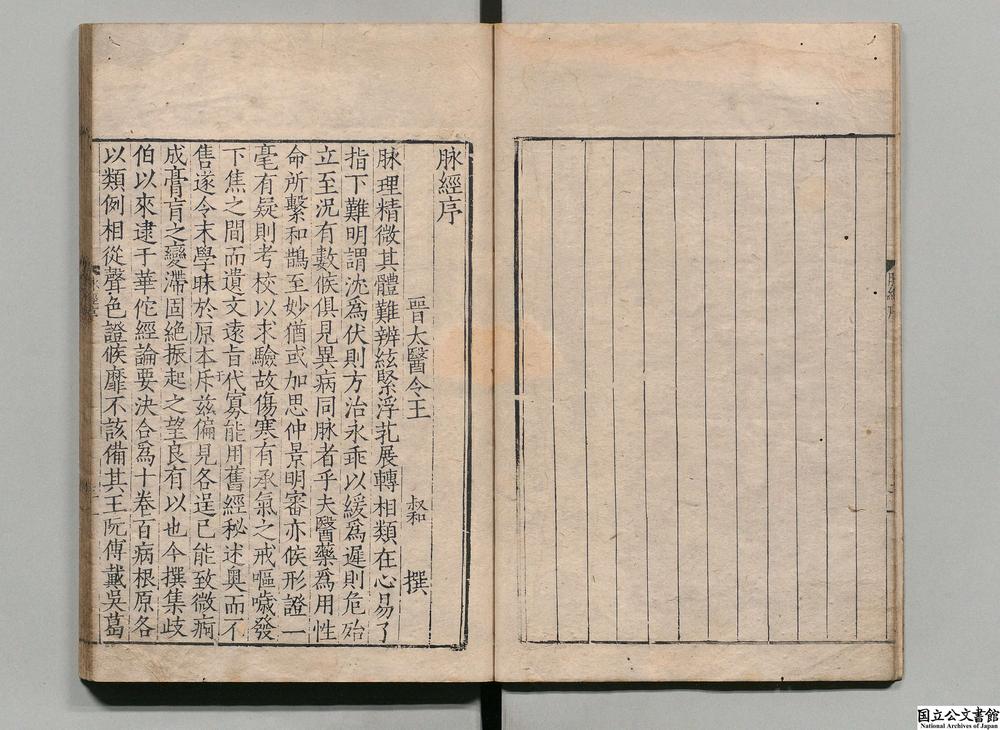 脉經序
晋太醫令王 叔和 撰
脉理精微其體難辨絃緊浮芤展轉相類在心易了
指下難明謂沈爲伏則方治永乖以緩爲遲則危殆
立至況有數候俱見異病同脉者乎夫醫藥爲用性
命所繫和鵲至妙猶或加思仲景明審亦候形證一
毫有疑則考校以求驗故傷寒有承氣之戒嘔噦發
下焦之間而遺文遠旨代寡能用舊經秘述奥而不
售遂令末學昧於原本斥兹偏見各逞已能致微痾
成膏肓之變滯固絶振起之望良有以也今撰集歧
伯以來逮于華佗經論要決合爲十卷百病根原各
以類例相從聲色證候靡不該備其王阮傅戴吳葛
国立公文書館
National Archives of Japan